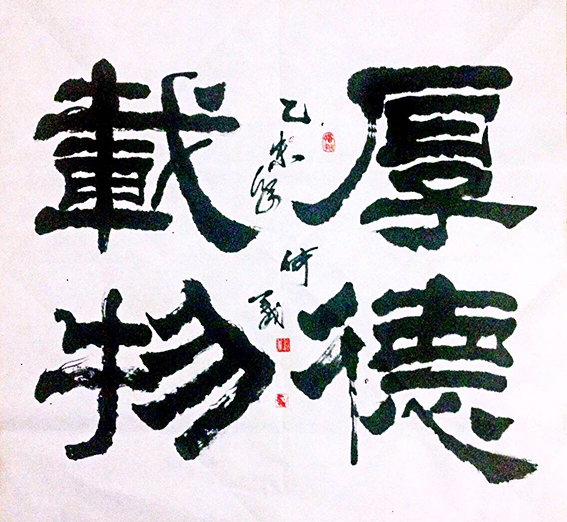 厚德
載物
乙未
何義